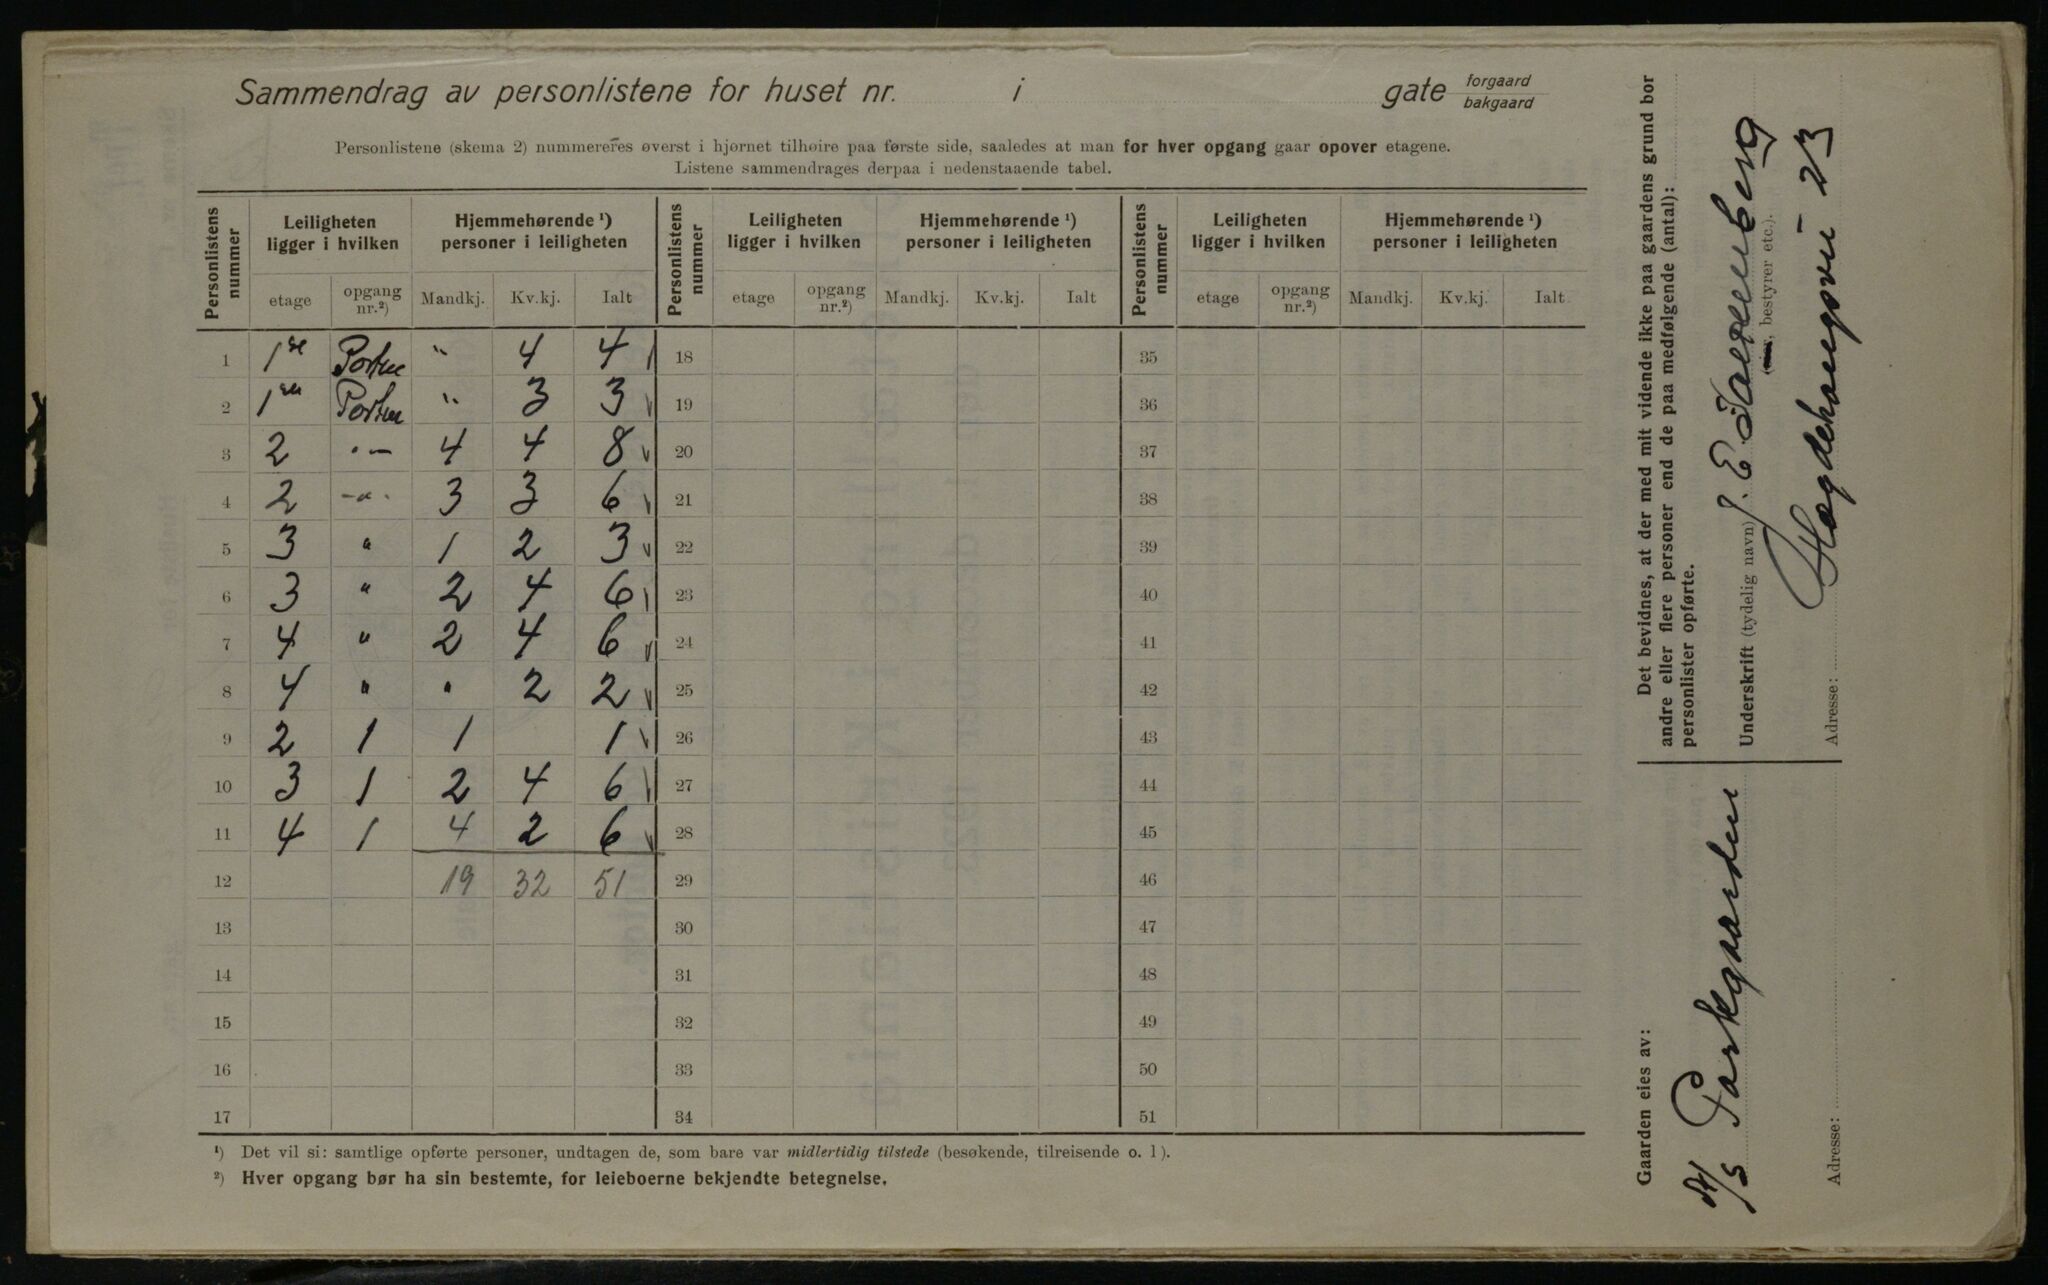 Sammendrag av personlistene for huset nr. i gate forgaard bakgaard
Personlistene (skema 2) nummereres øverst i hjørnet tilhøire paa første side, saaledes at man for hver opgang gaar opover etagene.
Listene sammendrages derpaa i nedenstaaende tabel.
Personlistens nummer Leiligheten ligger i hvilken Hjemmehørende ¹) personer i leiligheten Personlistens nummer Leiligheten ligger i hvilken Hjemmehørende ¹) personer i leiligheten Personlistens nummer Leiligheten ligger i hvilken Hjemmehørende ¹) personer i leiligheten
etage opgang nr.²) Mandkj. Kv.kj. Ialt etage opgang nr.²) Mandkj. Kv.kj. Ialt etage opgang nr.²) Mandkj. Kv.kj. Ialt
1 1ste Porten " 4 4 18 35
2 1ste Porten " 3 3 19 36
3 2 " – 4 4 8 20 37
4 2 –"– 3 3 6 21 38
5 3 " 1 2 3 22 39
6 3 " 2 4 6 23 40
7 4 " 2 4 6 24 41
8 4 " " 2 2 25 42
9 2 1 1 1 26 43
10 3 1 2 4 6 27 44
11 4 1 4 2 6 28 45
12 19 32 51 29 46
13 30 47
14 31 48
15 32 49
16 33 50
17 34 51
¹) Det vil si: samtlige opførte personer, undtagen de, som bare var midlertidig tilstede (besøkende, tilreisende o. l).
²) Hver opgang bør ha sin bestemte, for leieboerne bekjendte betegnelse.
Det bevidnes, at der med mit vidende ikke paa gaardens grund bor
andre eller flere personer end de paa medfølgende (antal):
personlister opførte.
Underskrift (tydelig navn) J. E.
, bestyrer etc.).
Adresse: Hegdehaugsvei 23
Gaarden eies av:
A/S Parkgaarden
Adresse: